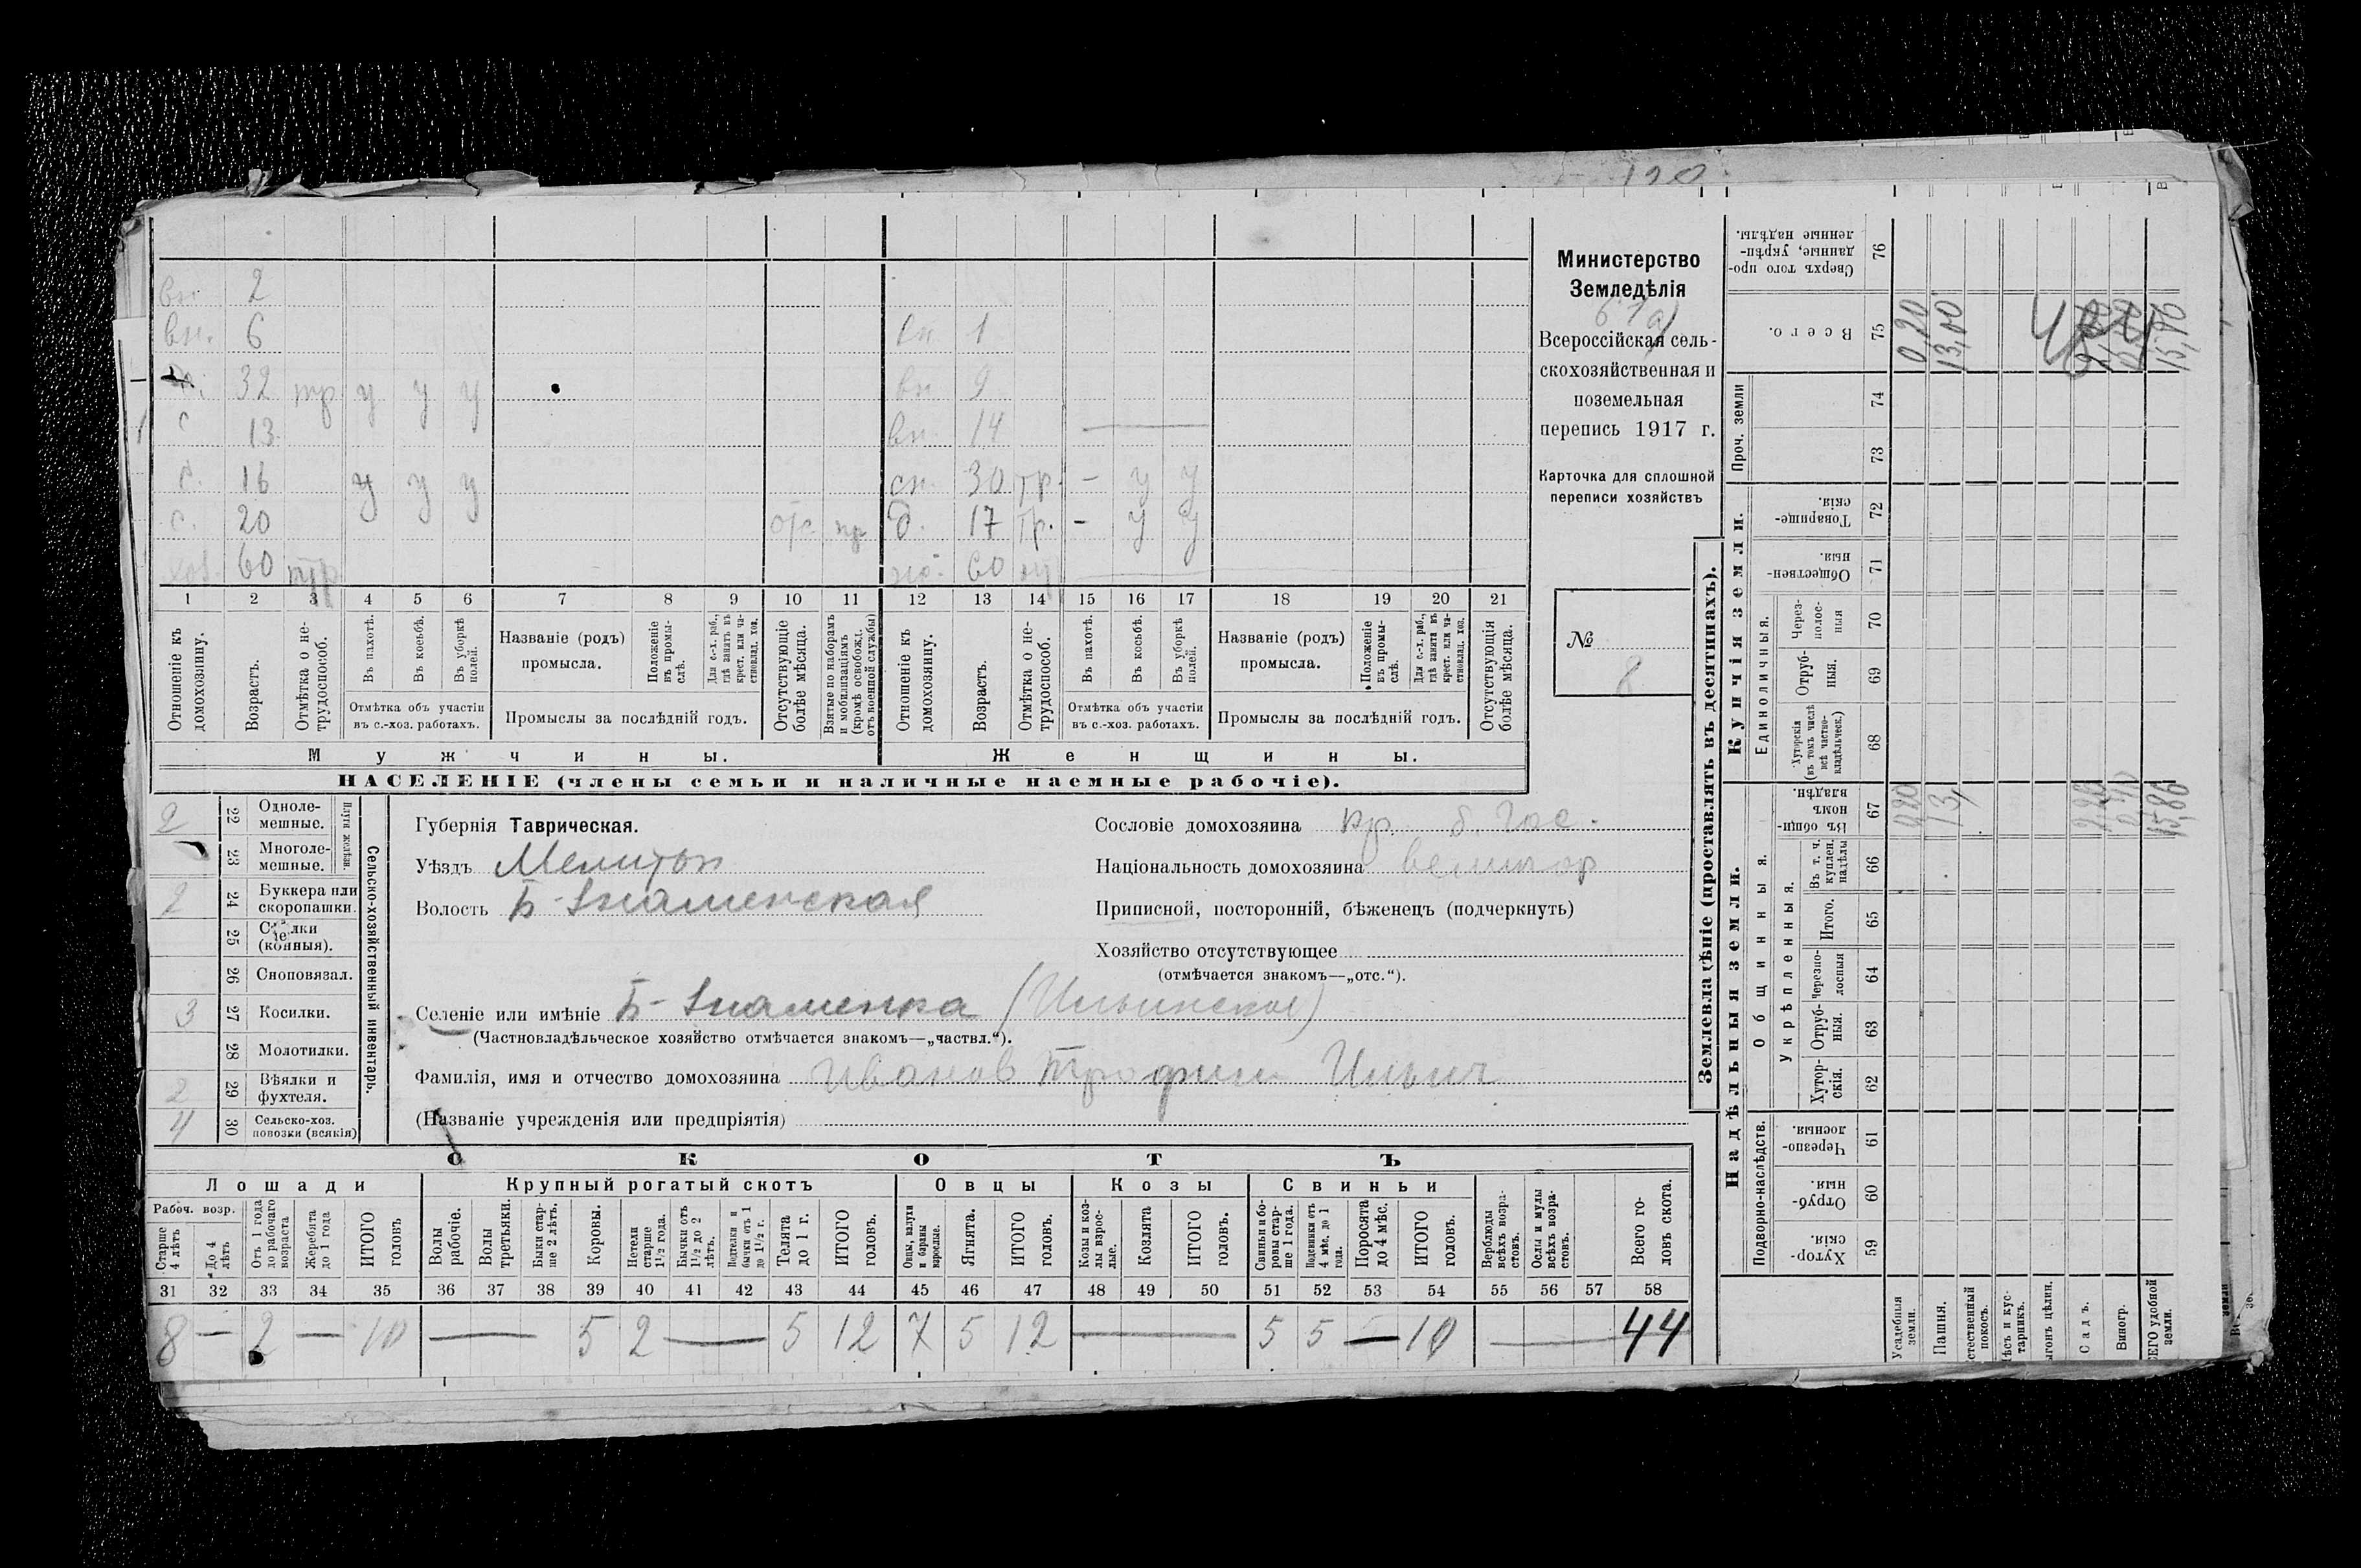 190
вн. 2
вн. 6 вн. 1
32 тр у у у вн. 9
с 13 вн. 14
с. 16 у у у сн. 30 тр. - у у
с. 20 отс пр д. 17 тр. - у у
хоз. 60 тр 60
1 2 3 4 5 6 7 8 9 10 11 12 13 14 15 16 17 18 19 20 21
Отношеніе къ домохозяину.
Возрастъ.
Отмѣтка о не-трудоспособ.
Въ пахотѣ.
Въ косьбѣ.
Въ уборкѣ полей.
Отмѣтка объ участіи
въ с.-хоз. работахъ.
Названіе (родъ)
промысла.
Положеніе въ промы-слѣ.
Для с.-х. раб., гдѣ занятъ въ крест. или ча-стновлад. хоз.
Промыслы за послѣдній годъ.
Отсутствующіе болѣе мѣсяца.
Взятые по наборамъ и мобилизаціямъ (кромѣ освобожд. отъ военной службы)
Отношеніе къ домохозяину.
Возрастъ.
Отмѣтка о не-трудоспособ.
Въ пахотѣ.
Въ косьбѣ.
Въ уборкѣ полей.
Отмѣтка объ участіи
въ с.-хоз. работахъ.
Названіе (родъ)
промысла.
Положеніе въ промы-слѣ.
Для с.-х. раб., гдѣ занята въ крест. или ча-стновлад. хоз.
Промыслы за послѣдній годъ.
Отсутствующія болѣе мѣсяца.
Мужчины. Женщины.
НАСЕЛЕНІЕ (члены семьи и наличные наемные рабочіе).
Министерство
Земледѣлія
Всероссійская сель-
скохозяйственная и
поземельная
перепись 1917 г.
Карточка для сплошной
переписи хозяйствъ
№
8
Сельско-хозяйственный инвентарь.
Плуги желѣзн.
2 22 Одноле-мешные.
23 Многоле-мешные.
2 24 Буккера или скоропашки.
25 (конныя).
26 Сноповязал.
3 27 Косилки.
28 Молотилки.
2 29 Вѣялки и фухтеля.
4 30 Сельско-хоз. повозки (всякія)
Губернія Таврическая.
Уѣздъ Мелитоп
Волость Б-Знаменская
Сословіе домохозяина кр. б. гос.
Національность домохозяина великор
Приписной, посторонній, бѣженецъ (подчеркнуть)
Хозяйство отсутствующее
(отмѣчается знакомъ—„отс.“).
Селеніе или имѣніе Б-Знаменка (Ильинское)
(Частновладѣльческое хозяйство отмѣчается знакомъ—„частвл.“).
Фамилія, имя и отчество домохозяина Иванов Трофим Ильич
(Названіе учрежденія или предпріятія)
СКОТЪ
Лошади Крупный рогатый скотъ Овцы Козы Свиньи
Рабоч. возр.
Старше 4 лѣтъ
До 4 лѣтъ
Отъ 1 года до рабочаго возраста
Жеребята до 1 года
ИТОГО головъ
Волы рабочіе.
Волы третьяки.
Быки стар-ше 2 лѣтъ.
Коровы.
Нетели старше 1½ года.
Бычки отъ 1½ до 2 лѣтъ.
Подтелки и бычки отъ 1 до 1½ г.
Телята до 1 г.
ИТОГО головъ.
Овцы, валухи и бараны взрослые.
Ягнята.
ИТОГО головъ.
Козы и коз-лы взрос-лые.
Козлята
ИТОГО головъ.
Свиньи и бо-ровы стар-ше 1 года.
Подсвинки отъ 4 мѣс. до 1 года.
Поросята до 4 мѣс.
ИТОГО головъ.
Верблюды всѣхъ возра-стовъ.
Ослы и мулы всѣхъ возра-стовъ.
Всего го-ловъ скота.
31 32 33 34 35 36 37 38 39 40 41 42 43 44 45 46 47 48 49 50 51 52 53 54 55 56 57 58
8 — 2 — 10 — 5 2 — 5 12 7 5 12 — 5 5 — 10 — 44
Землевладѣніе (проставлять въ десятинахъ).
Надѣльныя земли. Купчія земли. Проч. земли
Подворно-наслѣдств. Общинныя. Укрѣпленныя. Единоличныя.
Сверхъ того про-данные, укрѣп-ленные надѣлы. 76
Всего. 75 0,20 13,00 15,86
74
73
Товарище-скія. 72
Обществен-ныя. 71
Через-полос-ныя 70
Отруб-ныя. 69
Хуторскія (въ томъ числѣ всѣ частно-владѣльческ.) 68
Въ общи-номъ владѣн. 67 0,20 13, 2,26 15,86
Въ т. ч. куплен. надѣлы 66
Итого. 65
Черезпо-лосныя 64
Отруб-ныя. 63
Хутор-скія. 62
Черезпо-лосныя. 61
Отруб-ныя. 60
Хутор-скія. 59
Усадебныя земли.
Пашня.
покосъ.
Садъ.
Виногр.
удобной земли.